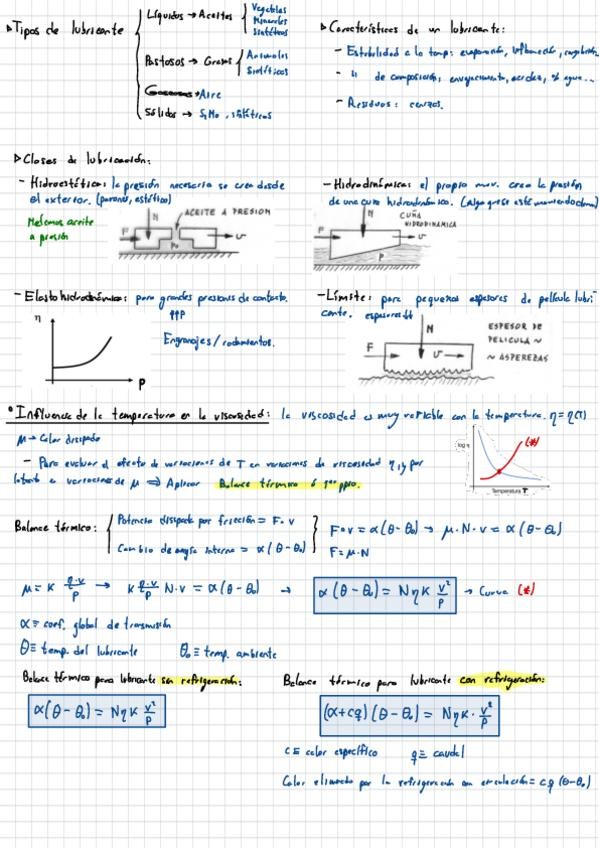 ▷ Tipos de lubricante
Líquidos → Aceites
Vegetales
Minerales
Sintéticos
Pastosos → Grasas
Animales
Sintéticos
Gaseosos → Aire
Sólidos → S₂Mo, sintéticos
▷ Características de un lubricante:
- Estabilidad a la temp: evaporación, inflamación, congelación.
- " de composición, envejecimiento, acidez, % agua...
- Residuos: cenizas.
▷ Clases de lubricación:
- Hidroestática: la presión necesaria se crea desde
el exterior. (parones, estático)
Metemos aceite
a presión
N
ACEITE A PRESION
F
v
P₀
- Hidrodinámica: el propio mov. crea la presión
de una cuña hidrodinámica. (Algo que se esté moviendo
N
CUÑA
HIDRODINAMICA
F
v
P
- Elastohidrodinámica: para grandes presiones de contacto.
↑↑P
η
Engranajes / rodamientos.
P
- Límite: para pequeños espesores de película lubri-
cante. espesores ↓↓
N
F
v
ESPESOR DE
PELICULA ~
~ ASPEREZAS
• Influencia de la temperatura en la viscosidad: la viscosidad es muy variable con la temperatura. η = η(T)
μ → Calor disipado
- Para evaluar el efecto de variaciones de T en variaciones de viscosidad η, y por
lo tanto a variaciones de μ ⇒ Aplicar Balance térmico ó 1er ppio.
log η
(*)
Temperatura T
Balance térmico:
Potencia disipada por fricción = F · v
Cambio de energía interna = α (θ - θ₀)
F · v = α (θ - θ₀) → μ · N · v = α (θ - θ₀)
F = μ · N
μ = K η·v/P → K η·v/P N · v = α (θ - θ₀) → α (θ - θ₀) = N η K v²/P → Curva (*)
α ≡ coef. global de transmisión
θ ≡ temp. del lubricante θ₀ ≡ temp. ambiente
Balance térmico para lubricante sin refrigeración:
α (θ - θ₀) = N η K · v²/P
Balance térmico para lubricante con refrigeración:
(α + cq) (θ - θ₀) = N η K · v²/P
c ≡ calor específico q ≡ caudal
Calor eliminado por la refrigeración con circulación = cq (θ - θ₀)